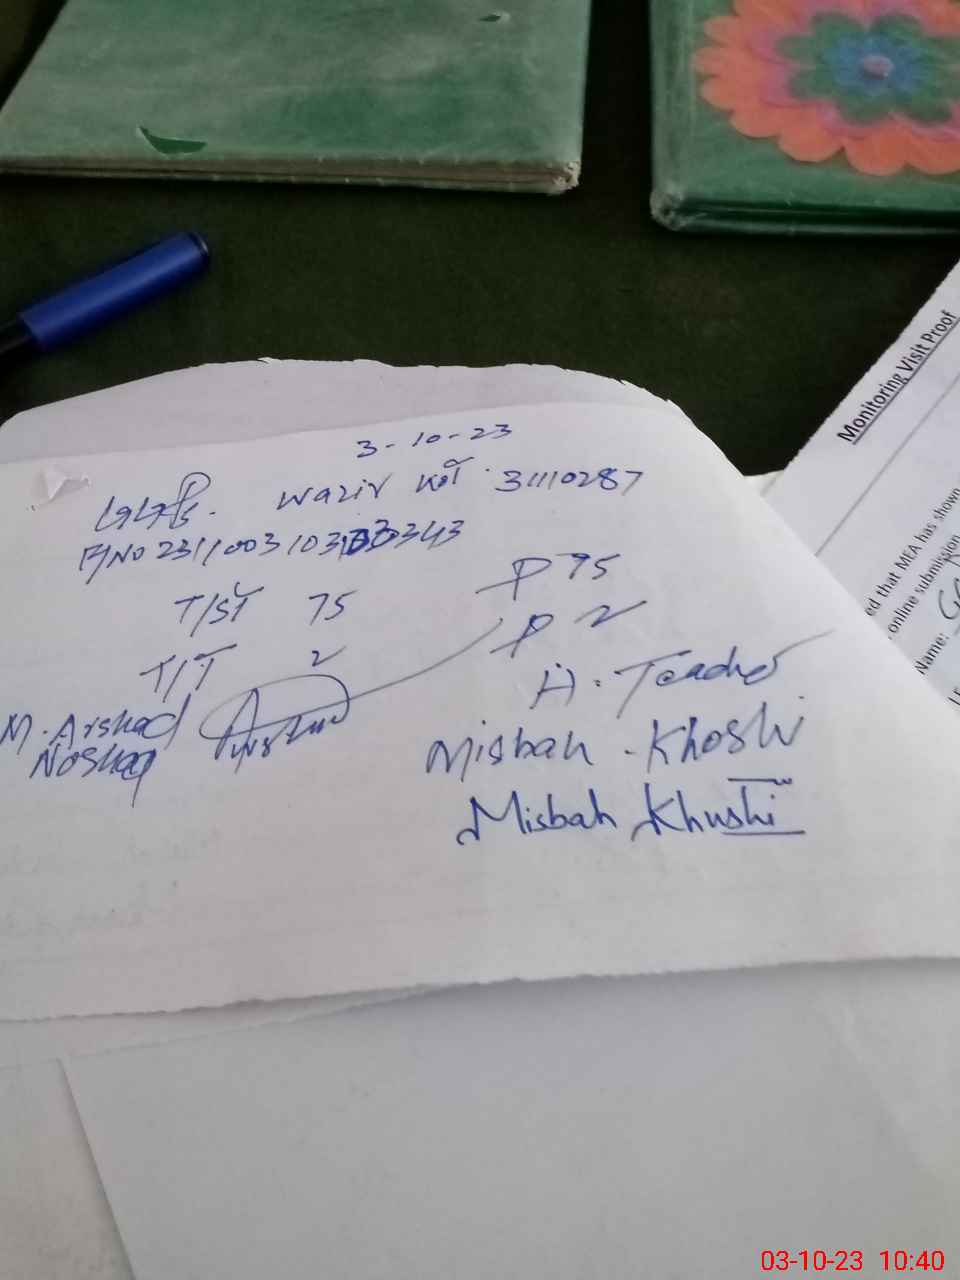 3-10-23
GGPS. Waziv Kot 31110287
P/NO 2311003103
T/ST 75 P 75
T/T 2 P 2
H. Teacher
M. Arshad
Misbah Khoshi
Misbah Khushi
Monitoring Visit Proof
ed that MEA has shown
online submission
Name:
03-10-23 10:40